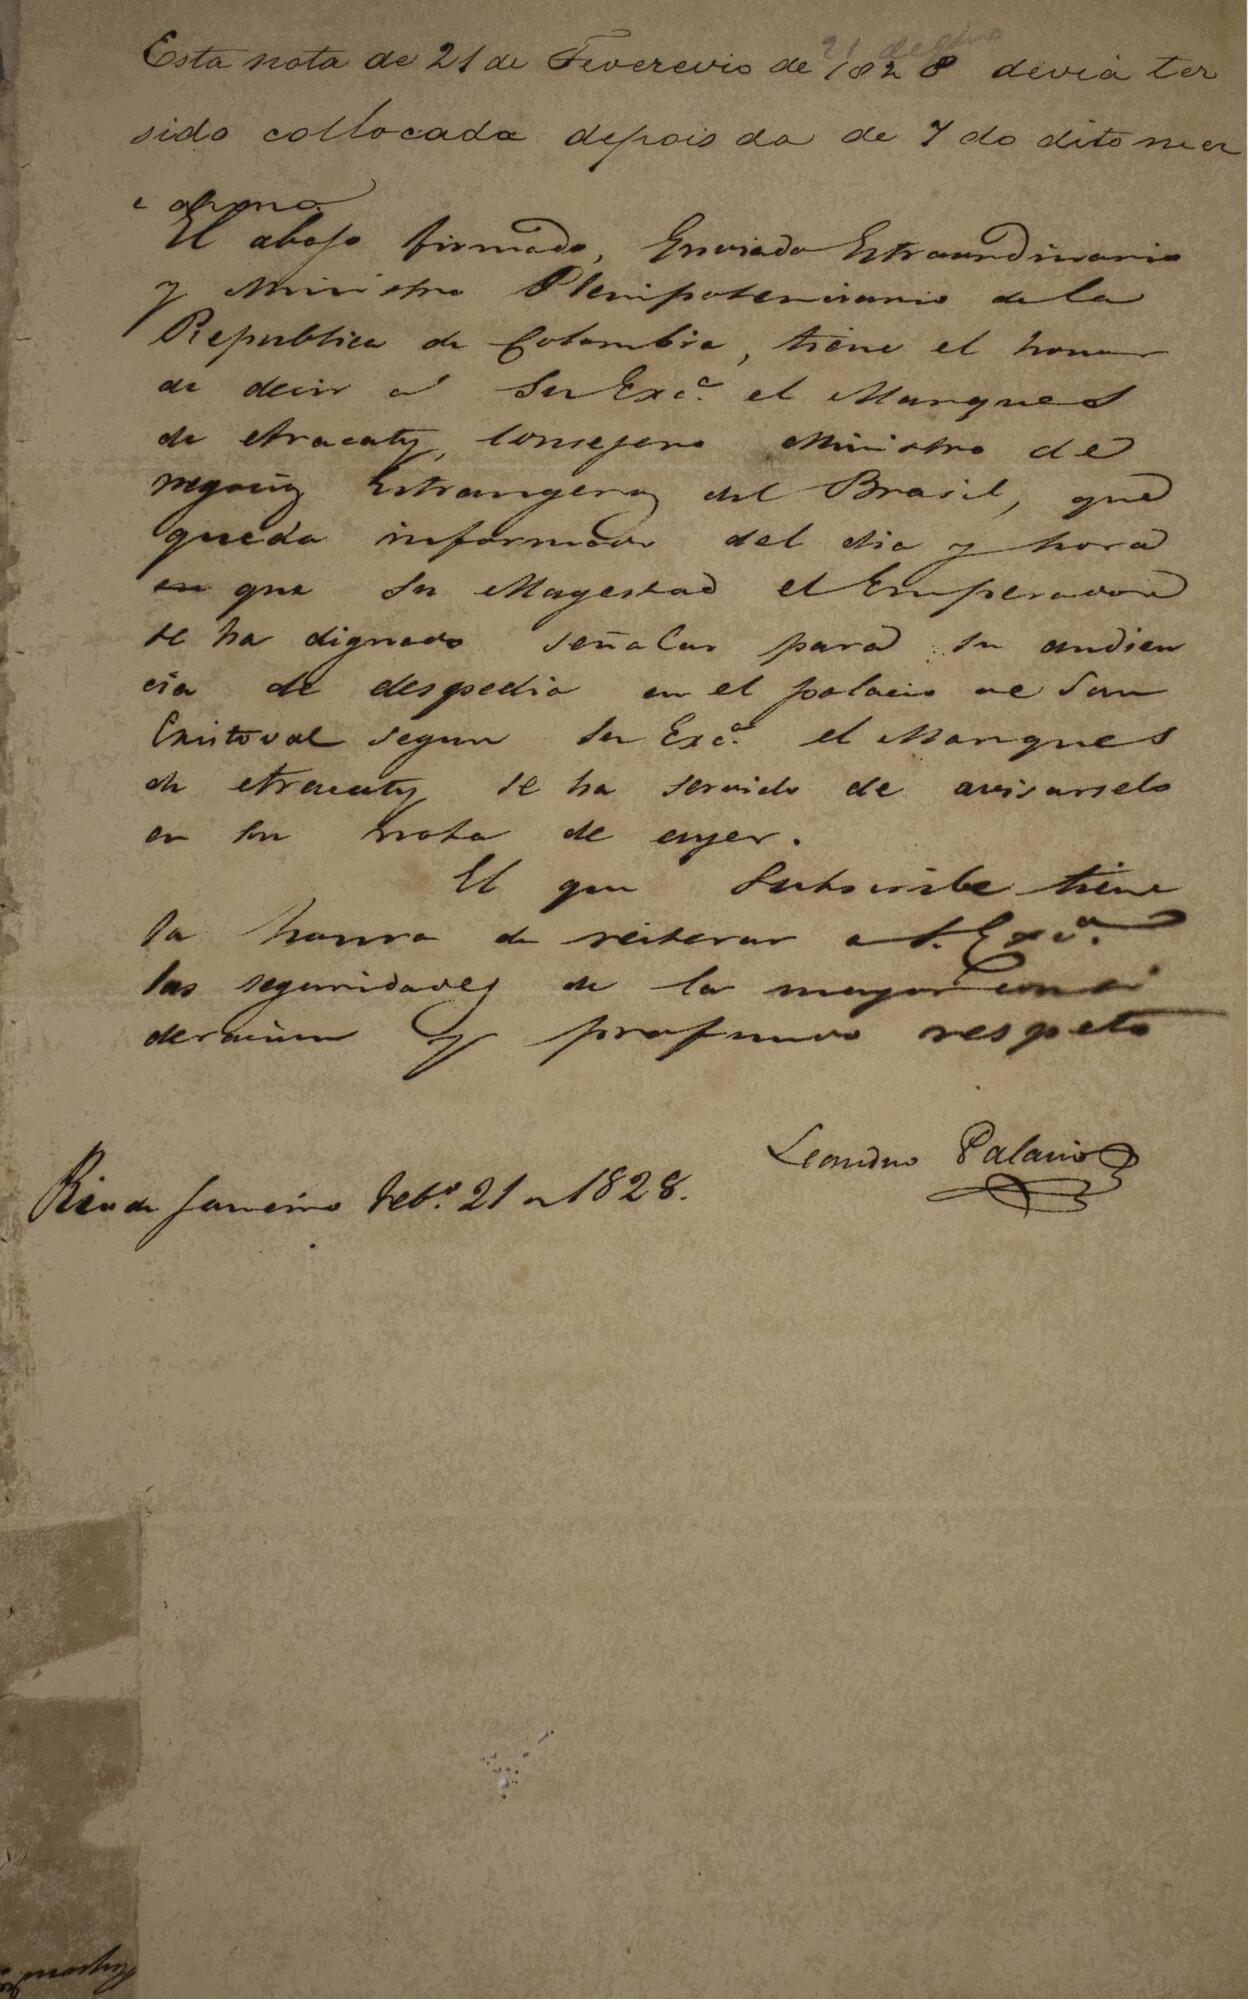 Esta nota de 21 de Fevereiro de 1828 devia ter
sido collocada depois da de 7 do dito mez
e anno.
El abajo firmado, Enviado Estraordinario
y Ministro Plenipotenciario de la
Republica de Colombia, tiene el honor
de decir a Su Exc.ª el Marques
de Aracaty, Consejero Ministro de
negocios Estrangeros del Brasil, que
queda informado del dia y hora
en que Su Magestad el Emperador
se ha dignado señalar para su audien
cia de despedia en el palacio de San
Cristoval segun Su Exc.ª el Marques
de Aracaty se ha servido de avisarselo
en su nota de ayer.
El que Subscribe tiene
la honra de reiterar a S. Exc.ª
las seguridades de la mayor consi
deracion y profundo respeto
Leandro Palacios
Rio de Janeiro Feb.º 21 de 1828.